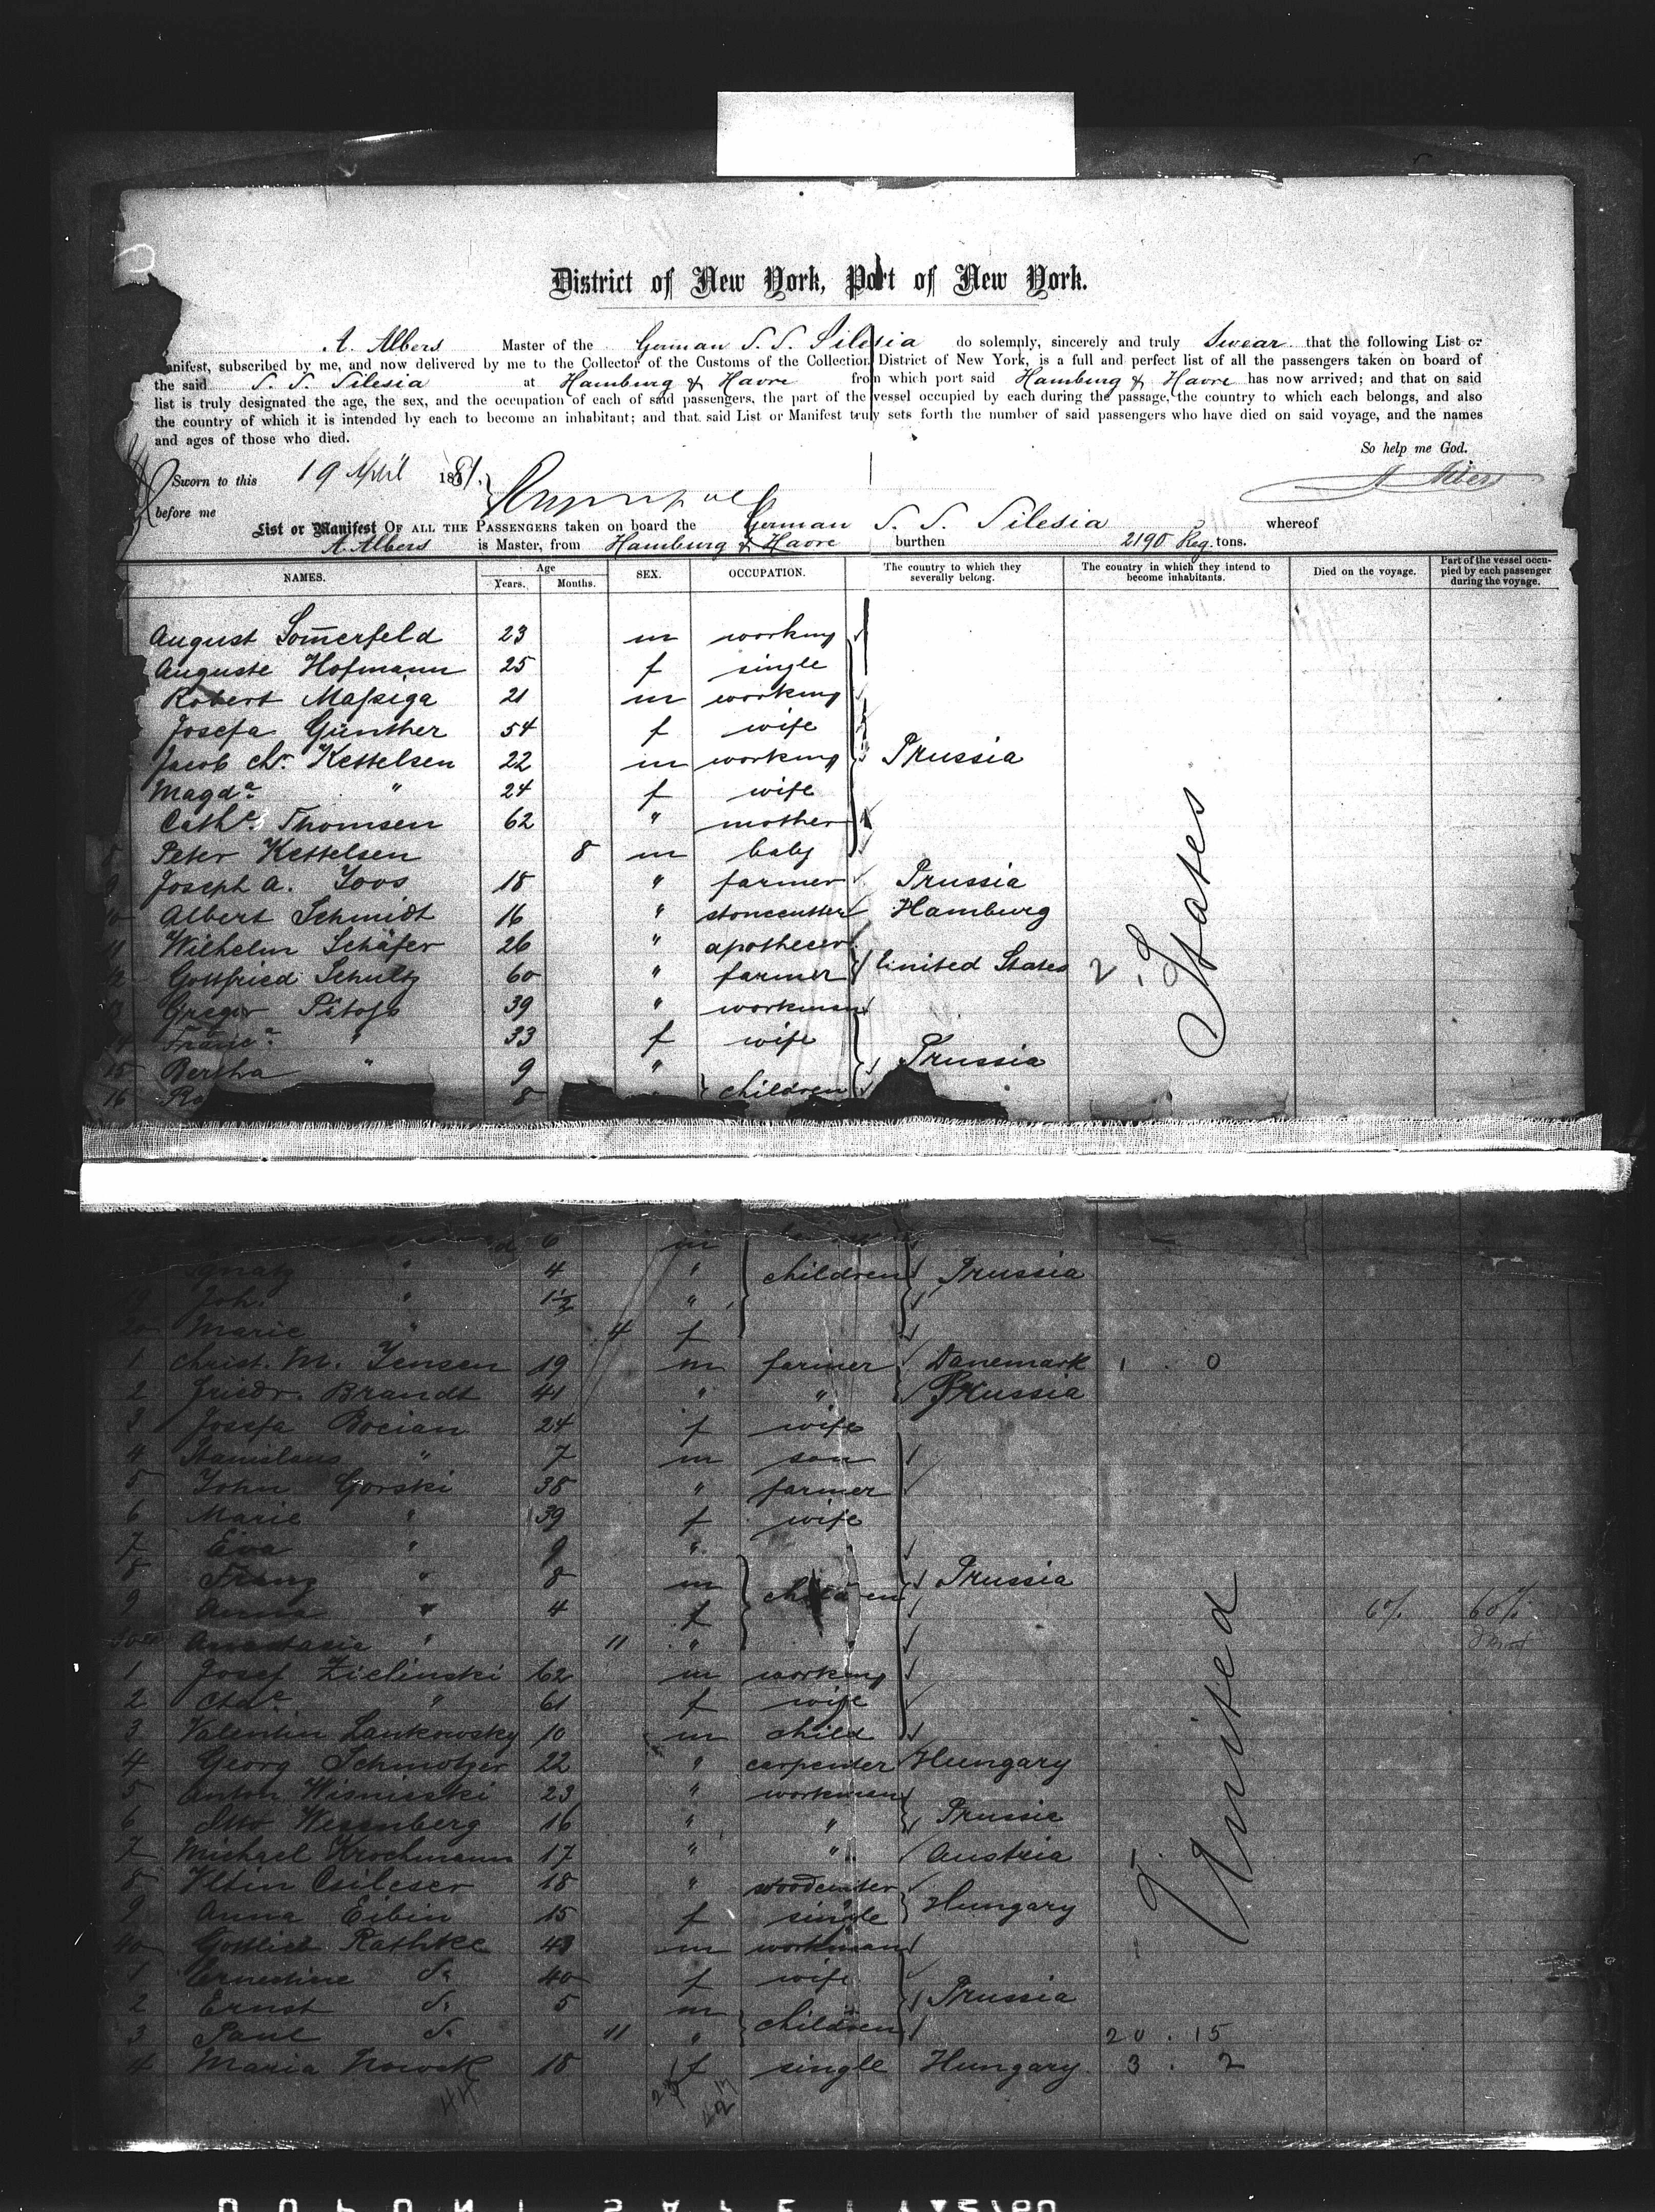 District of New York, Port of New York.
A. Albers Master of the German S. S. Silesia do solemnly, sincerely and truly Swear that the following List or
anifest, subscribed by me, and now delivered by me to the Collector of the Customs of the Collection District of New York, is a full and perfect list of all the passengers taken on board of
the said S. S. Silesia at Hamburg & Havre from which port said Hamburg & Havre has now arrived; and that on said
list is truly designated the age, the sex, and the occupation of each of said passengers, the part of the vessel occupied by each during the passage, the country to which each belongs, and also
the country of which it is intended by each to become an inhabitant; and that said List or Manifest truly sets forth the number of said passengers who have died on said voyage, and the names
and ages of those who died.
So help me God.
Sworn to this 19 April 1881.
A Albers
before me
List or Manifest OF ALL THE PASSENGERS taken on board the German S. S. Silesia whereof
A. Albers is Master, from Hamburg & Havre burthen 2190 Reg. tons.
NAMES. Age Years. Months. SEX. OCCUPATION. The country to which they severally belong. The country in which they intend to become inhabitants. Died on the voyage. Part of the vessel occupied by each passenger during the voyage.
August Som̄erfeld 23 m working
Auguste Hofmann 25 f single
Robert Massiga 21 m working
Josefa Günther 54 f wife
Jacob Chr. Kettelsen 22 m working Prussia
Magda " 24 f wife
Cathe. Thomsen 62 " mother
8 Peter Kettelsen 8 m baby
9 Joseph A. Joos 18 " farmer Prussia
10 Albert Schmidt 16 " stonecutter Hamburg
11 Wilhelm Schäfer 26 " apothecer
12 Gottfried Schultz 60 " farmer United States 2 . 1
13 Gregor 39 " workman
14 Franca " 33 f wife
15 Bertha " 9 " Prussia
16 Ro 8 children
6 m
Ignatz " 4 " children Prussia
19 Joh. " 1½ "
20 Marie " 4 f
1 Christ. M. Jensen 19 m farmer Danemark 1 . 0
2 Friedr. Brandt 41 " " Prussia
3 Josefa Bocian 24 f wife
4 Stanislaus " 7 m son
5 John Gorski 38 " farmer
6 Marie " 39 f wife
7 Eva " 9 "
8 Franz " 8 m children Prussia
9 Anna " 4 f
30 Anastasia " 11 " "
1 Josef Zielinski 62 m working
2 " 61 f wife
3 Valentin Lankowsky 10 m child
4 Georg Schmotzer 22 " carpenter Hungary
5 Anton Wisnieski 23 " workman
6 Otto Wesenberg 16 " " Prussia
7 Michael Krochmann 17 " " Austria 1
8 Csilcser 18 " woodcutter
9 Anna Eibin 15 f single Hungary
40 Gottlieb Rathke 43 m workman
1 Ernestine do 40 f wife
2 Ernst do 5 m Prussia
3 Paul do 11 " children 20 . 15
4 Maria Nowak 18 f single Hungary 3 . 2
United States
44